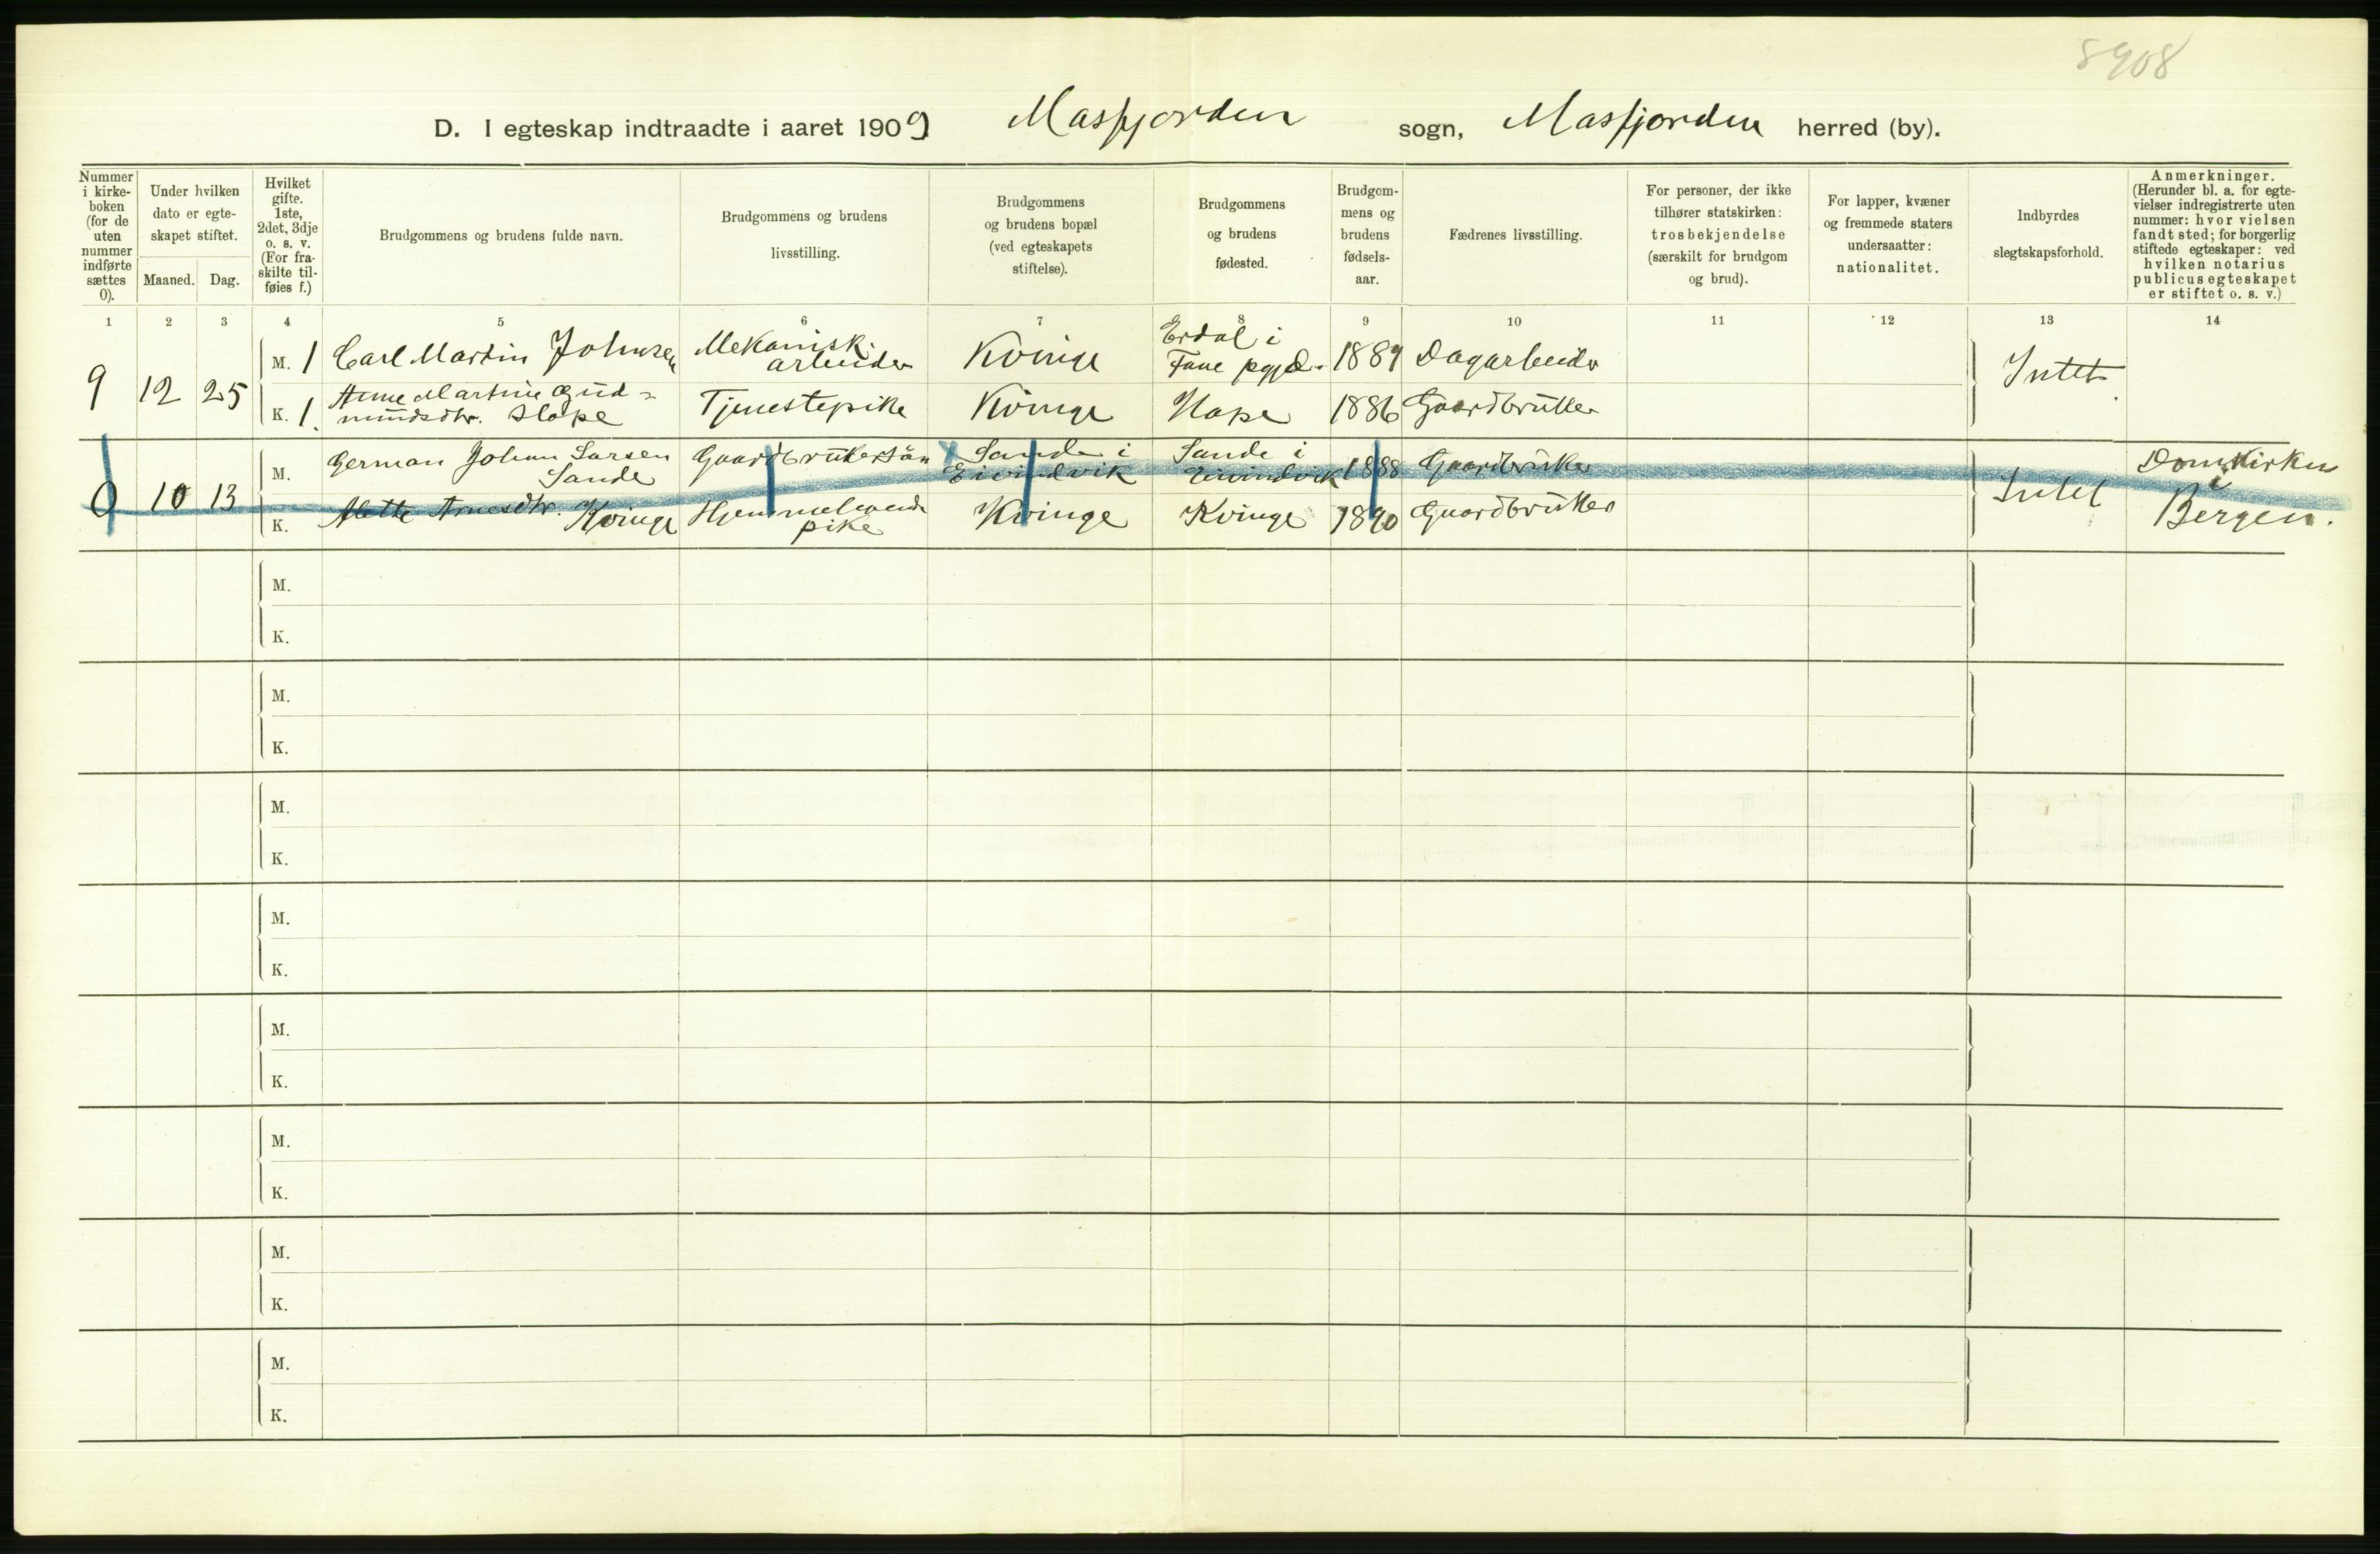 5908
D. I egteskap indtraadte i aaret 1909 Masfjorden sogn, Masfjorden herred (by).
Nummer i kirke- boken (for de uten nummer indførte sættes 0).
Under hvilken dato er egte- skapet stiftet.
Maaned. Dag.
Hvilket gifte. 1ste, 2det, 3dje o. s. v. (For fra- skilte til- føies f.)
Brudgommens og brudens fulde navn.
Brudgommens og brudens livsstilling.
Brudgommens og brudens bopæl (ved egteskapets stiftelse).
Brudgommens og brudens fødested.
Brudgom- mens og brudens fødsels- aar.
Fædrenes livsstilling.
For personer, der ikke tilhører statskirken: trosbekjendelse (særskilt for brudgom og brud).
For lapper, kvæner og fremmede staters undersaatter: nationalitet.
Indbyrdes slegtskapsforhold.
Anmerkninger. (Herunder bl. a. for egte- vielser indregistrerte uten nummer: hvor vielsen fandt sted; for borgerlig stiftede egteskaper: ved hvilken notarius publicus egteskapet er stiftet o. s. v.)
1 2 3 4 5 6 7 8 9 10 11 12 13 14
9 12 25
M. 1 Carl Martin Johnsen Mekanisk arbeider Kvinge Erdal i Fane pgjd. 1889 Dagarbeider
K. 1. Anne Martine Gud- mundsdtr. Hope Tjenestepike Kvinge Hope 1886 Gaardbruker
Intet
0 10 13
M. German Johan Larsen Sande Gaardbrukersøn Sande i Eivindvik Sande i Eivindvik 1888 Gaardbruker
K. Mette Arnesdtr. Kvinge Hjemmeværende pike Kvinge Kvinge 1890 Gaardbruker
Intet
Domkirken i Bergen.
M.
K.
M.
K.
M.
K.
M.
K.
M.
K.
M.
K.
M.
K.
M.
K.